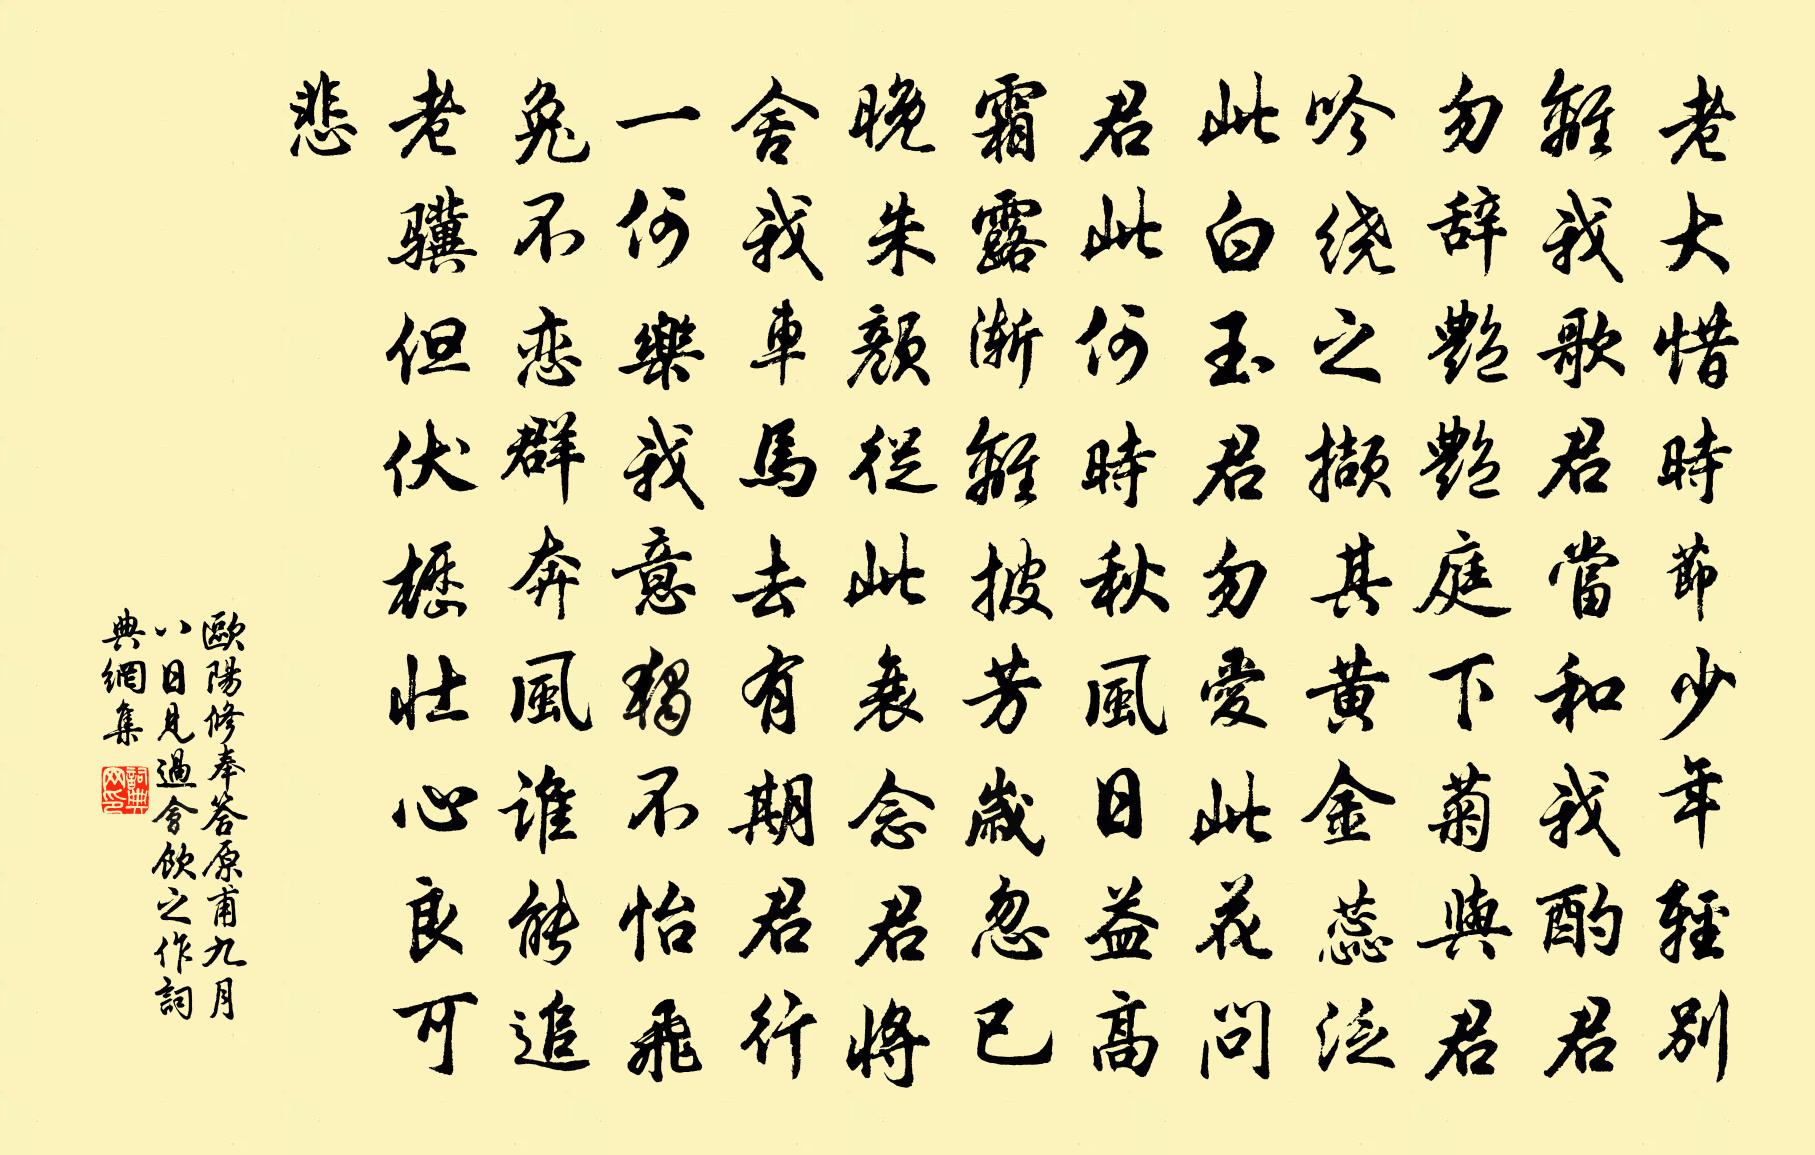 老大惜時節少年輕別
離我歌君當和我酌君
勿辞艷艷庭下菊與君
吟绕之擷其黄金蕊泛
此白玉君勿愛此花問
君此何時秋風日益高
霜露渐離披芳歲忽已
晚朱顏從此衰念君將
舍我車馬去有期君行
一何樂我意獨不怡飛
兔不恋群奔風谁能追
老骥但伏櫪壯心良可
悲
歐陽修奉答原甫九月
八日見過會飲之作詞
典網集
詞典网印